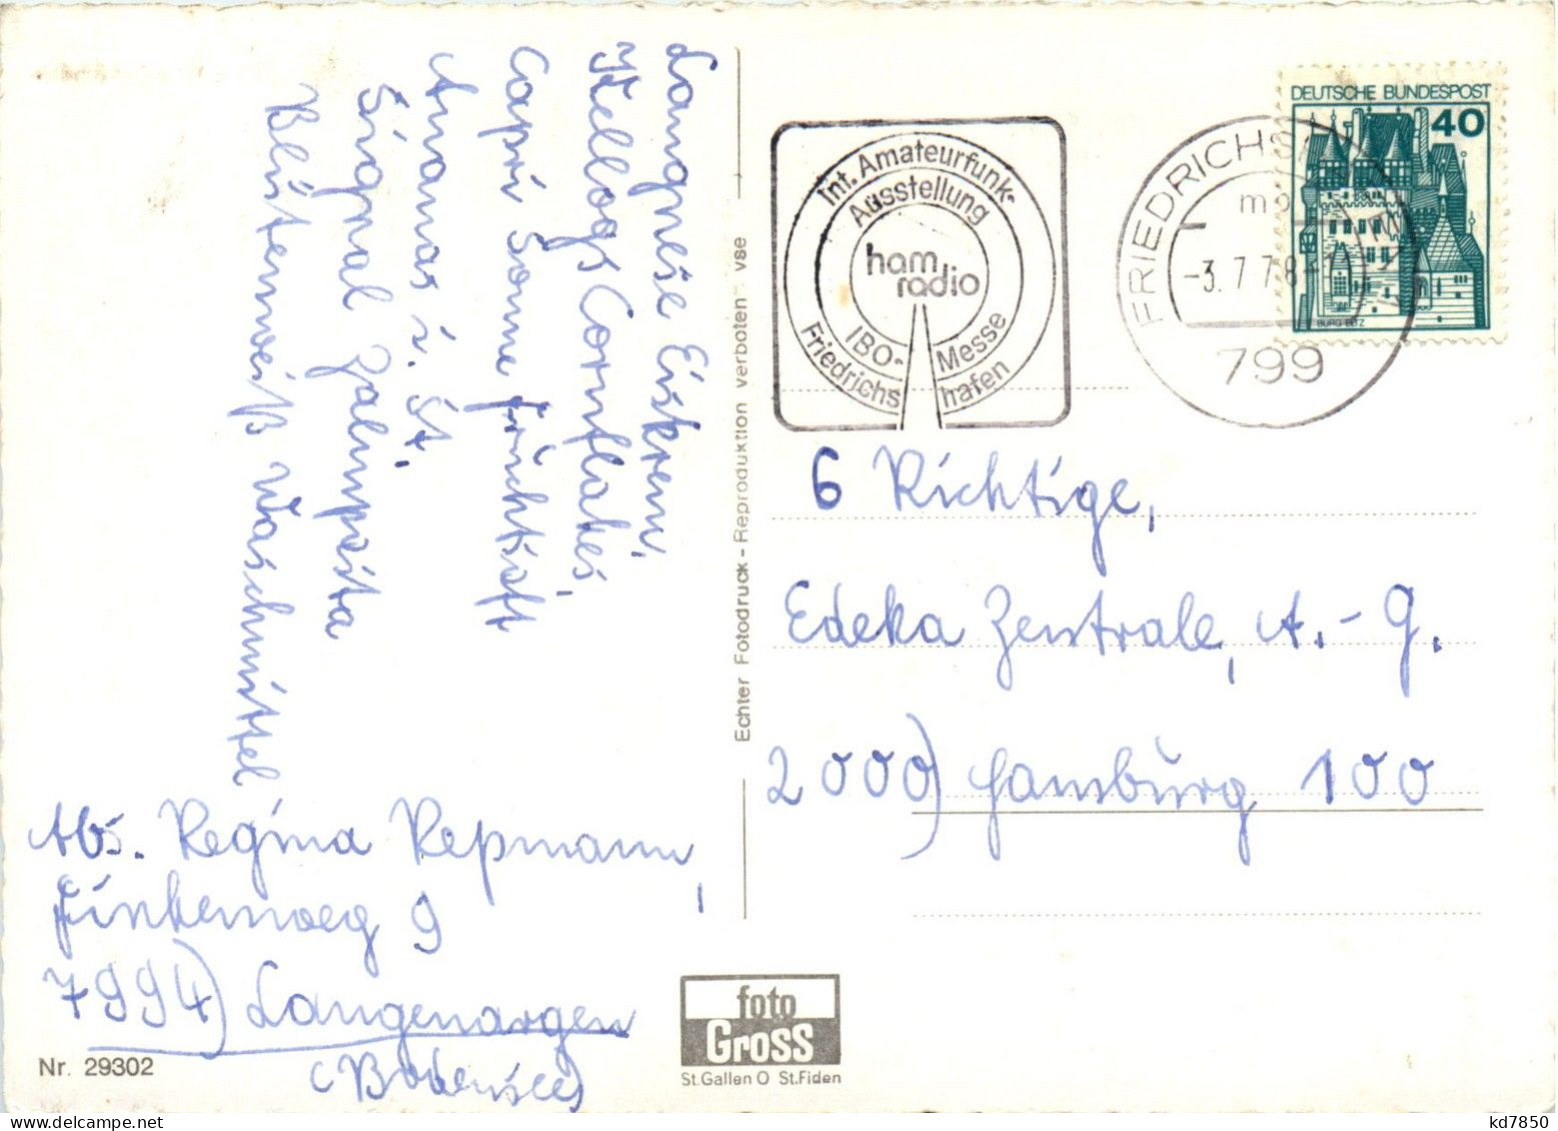 Langnese Eiskrem,
Kellogs Cornflakes,
Capri Sonne Fruchtsaft
Ananas i. St.
Signal Zahnpasta
Blütenweiß Waschmittel
Abs. Regina Repmann,
Finkenweg 9
7994) Langenargen
(Bodensee)
Nr. 29302
Echter Fotodruck - Reproduktion verboten - vse
foto
Gross
St.Gallen O St.Fiden
Int. Amateurfunk-
Ausstellung
ham
radio
IBO- Messe
Friedrichshafen
FRIEDRICHSHAFEN
-3.7.78
799
DEUTSCHE BUNDESPOST
40
BURG ELTZ
6 Richtige,
Edeka Zentrale, A.-G.
2000) Hamburg 100
kd7850